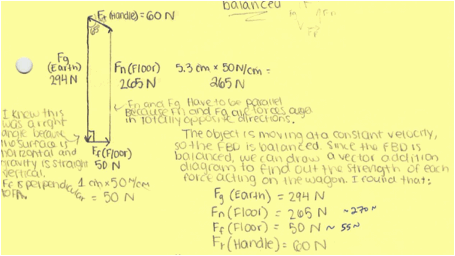 balanced
Ft (Handle) = 60 N
Fg
(Earth)
294 N
Fn (Floor)
265 N
5.3 cm × 50 N/cm =
265 N
Fn and Fg Have to be parallel
because Fn and Fg are forces
in totally opposite directions.
I knew this
was a right
angle because
the surface is
horizontal and
gravity is straight
vertical.
Ff is perpendicular
to Fn.
Ff (Floor)
50 N
1 cm × 50 N/cm
= 50 N
The object is moving at a constant velocity,
so the FBD is balanced. Since the FBD is
balanced, we can draw a vector addition
diagram to find out the strength of each
force acting on the wagon. I found that:
Fg (Earth) = 294 N
Fn (Floor) = 265 N ~270 N
Ff (Floor) = 50 N ~ 55 N
Ft (Handle) = 60 N